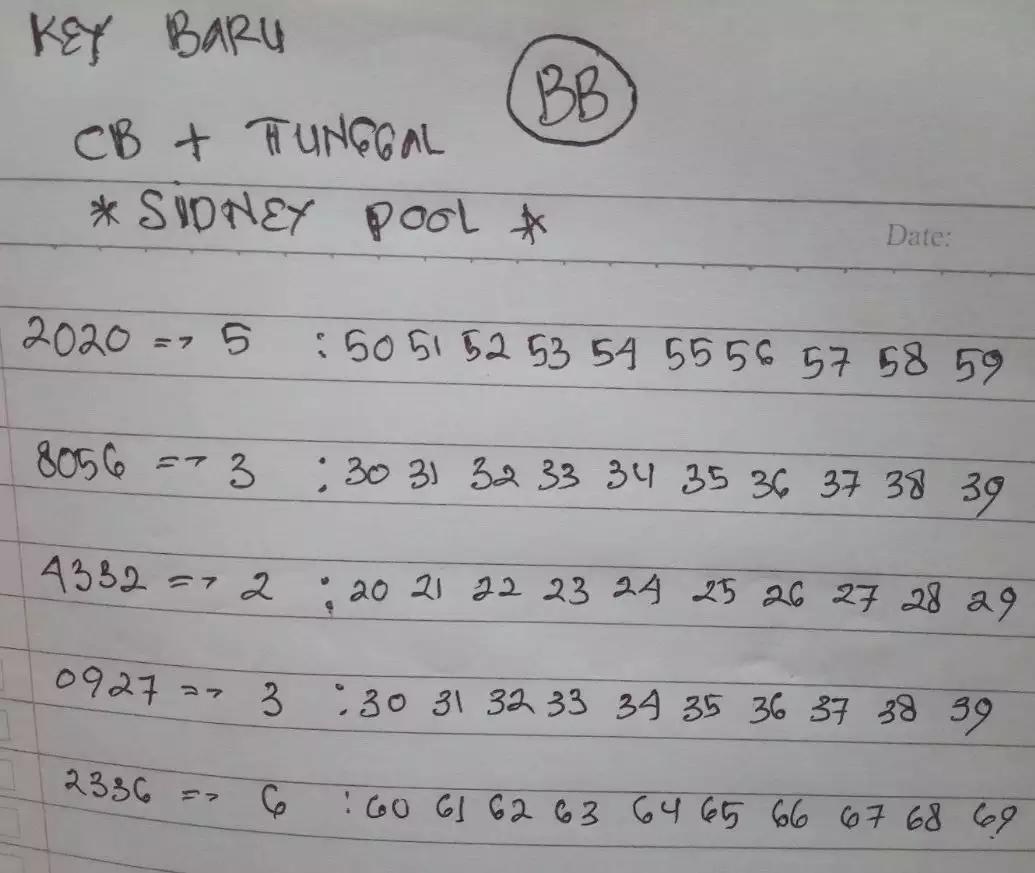 KEY BARU
BB
CB + TUNGGAL
* SIDNEY POOL *
Date:
2020 => 5 : 50 51 52 53 54 55 56 57 58 59
8056 => 3 : 30 31 32 33 34 35 36 37 38 39
4332 => 2 : 20 21 22 23 24 25 26 27 28 29
0927 => 3 : 30 31 32 33 34 35 36 37 38 39
2336 => 6 : 60 61 62 63 64 65 66 67 68 69